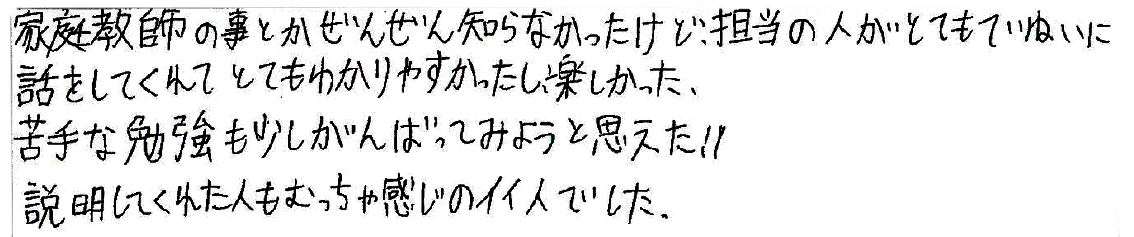 家庭教師の事とかぜんぜん知らなかったけど、担当の人がとてもていねいに
話をしてくれてとてもわかりやすかったし、楽しかった、
苦手な勉強も少しがんばってみようと思えた!!
説明してくれた人もむっちゃ感じのイイ人でした.